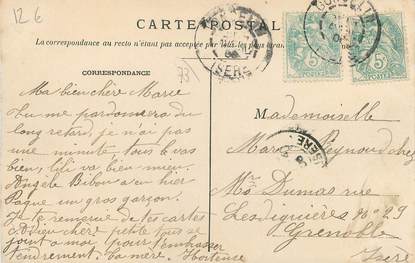 12 €
CARTE POSTALE
La correspondance au recto n'étant pas acceptée par tous les pays étrangers
CORRESPONDANCE
ISERE
5 5
POSTES POSTES
Ma bien chère Marie
tu me pardonnera du
long retard, je n'ai pas
une minute tous le vas
bien, lili va bien mieu.
Angèle Bibou a eu hier
Paque un gros garçon.
Je te remercie de tes cartes
Dieu chère petite tous se
joint a moi, pour t'embrasser
tendrement. ta mère. Hortense
73
Mademoiselle
Marie Reynoud chez
Mr Dumas rue
Lesdiguières no 29
Grenoble
Isère